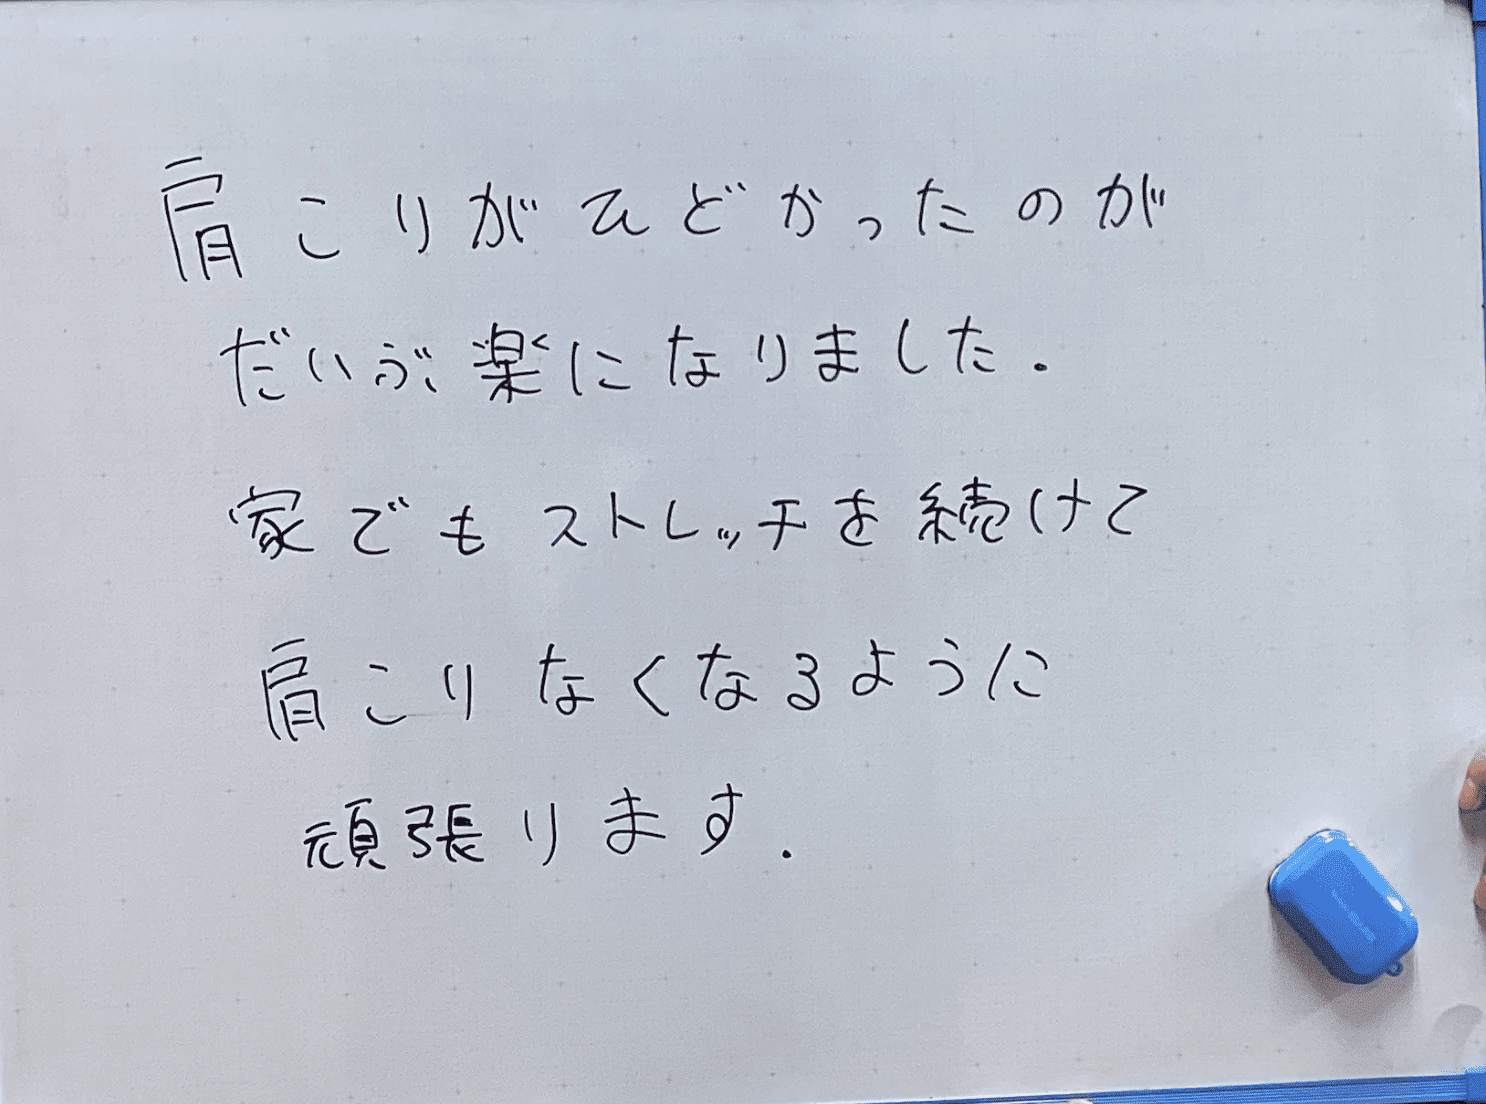 肩こりがひどかったのが
だいぶ楽になりました.
家でもストレッチを続けて
肩こりなくなるように
頑張ります.